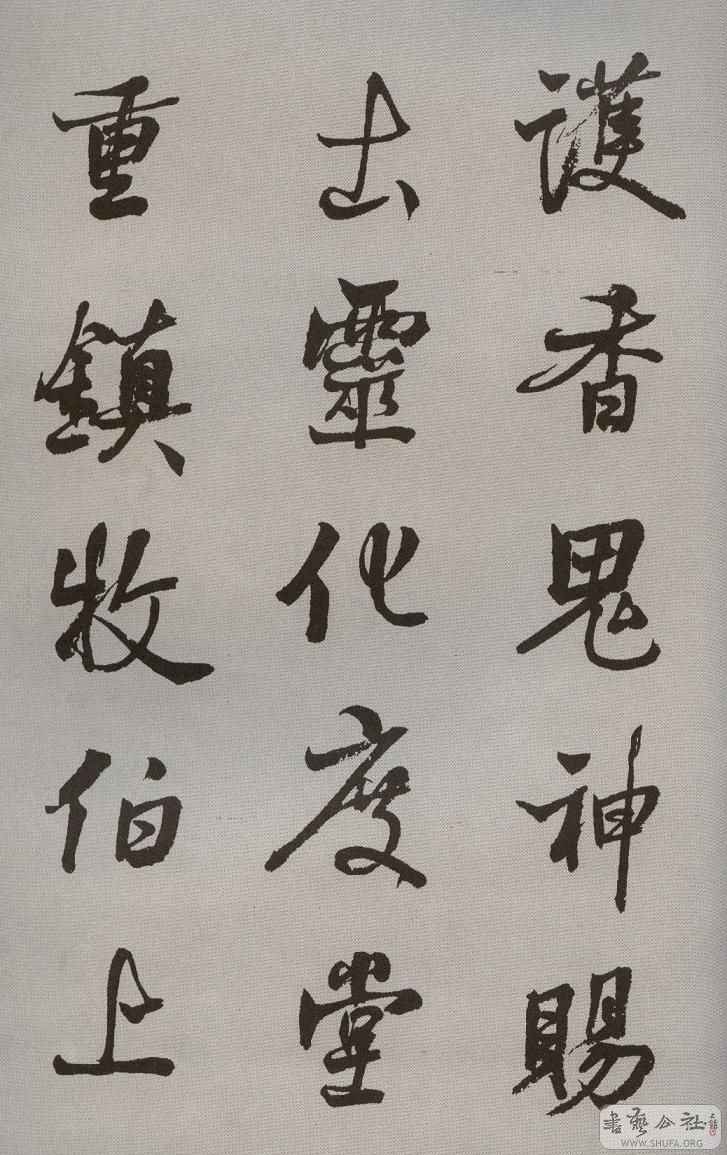 護香鬼神賜
出靈化度堂
重鎮牧伯上
書藝公社
WWW.SHUFA.ORG